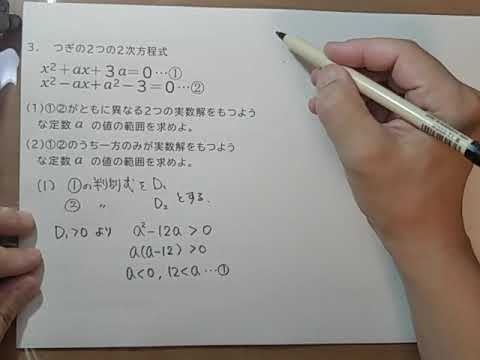 3. つぎの2つの2次方程式
x²+ax+3a=0…①
x²-ax+a²-3=0…②
(1)①②がともに異なる2つの実数解をもつよう
な定数a の値の範囲を求めよ。
(2)①②のうち一方のみが実数解をもつよう
な定数a の値の範囲を求めよ。
(1) ①の判別式を D₁
② 〃 D₂ とする.
D₁>0 より a²-12a>0
a(a-12)>0
a<0, 12<a…①